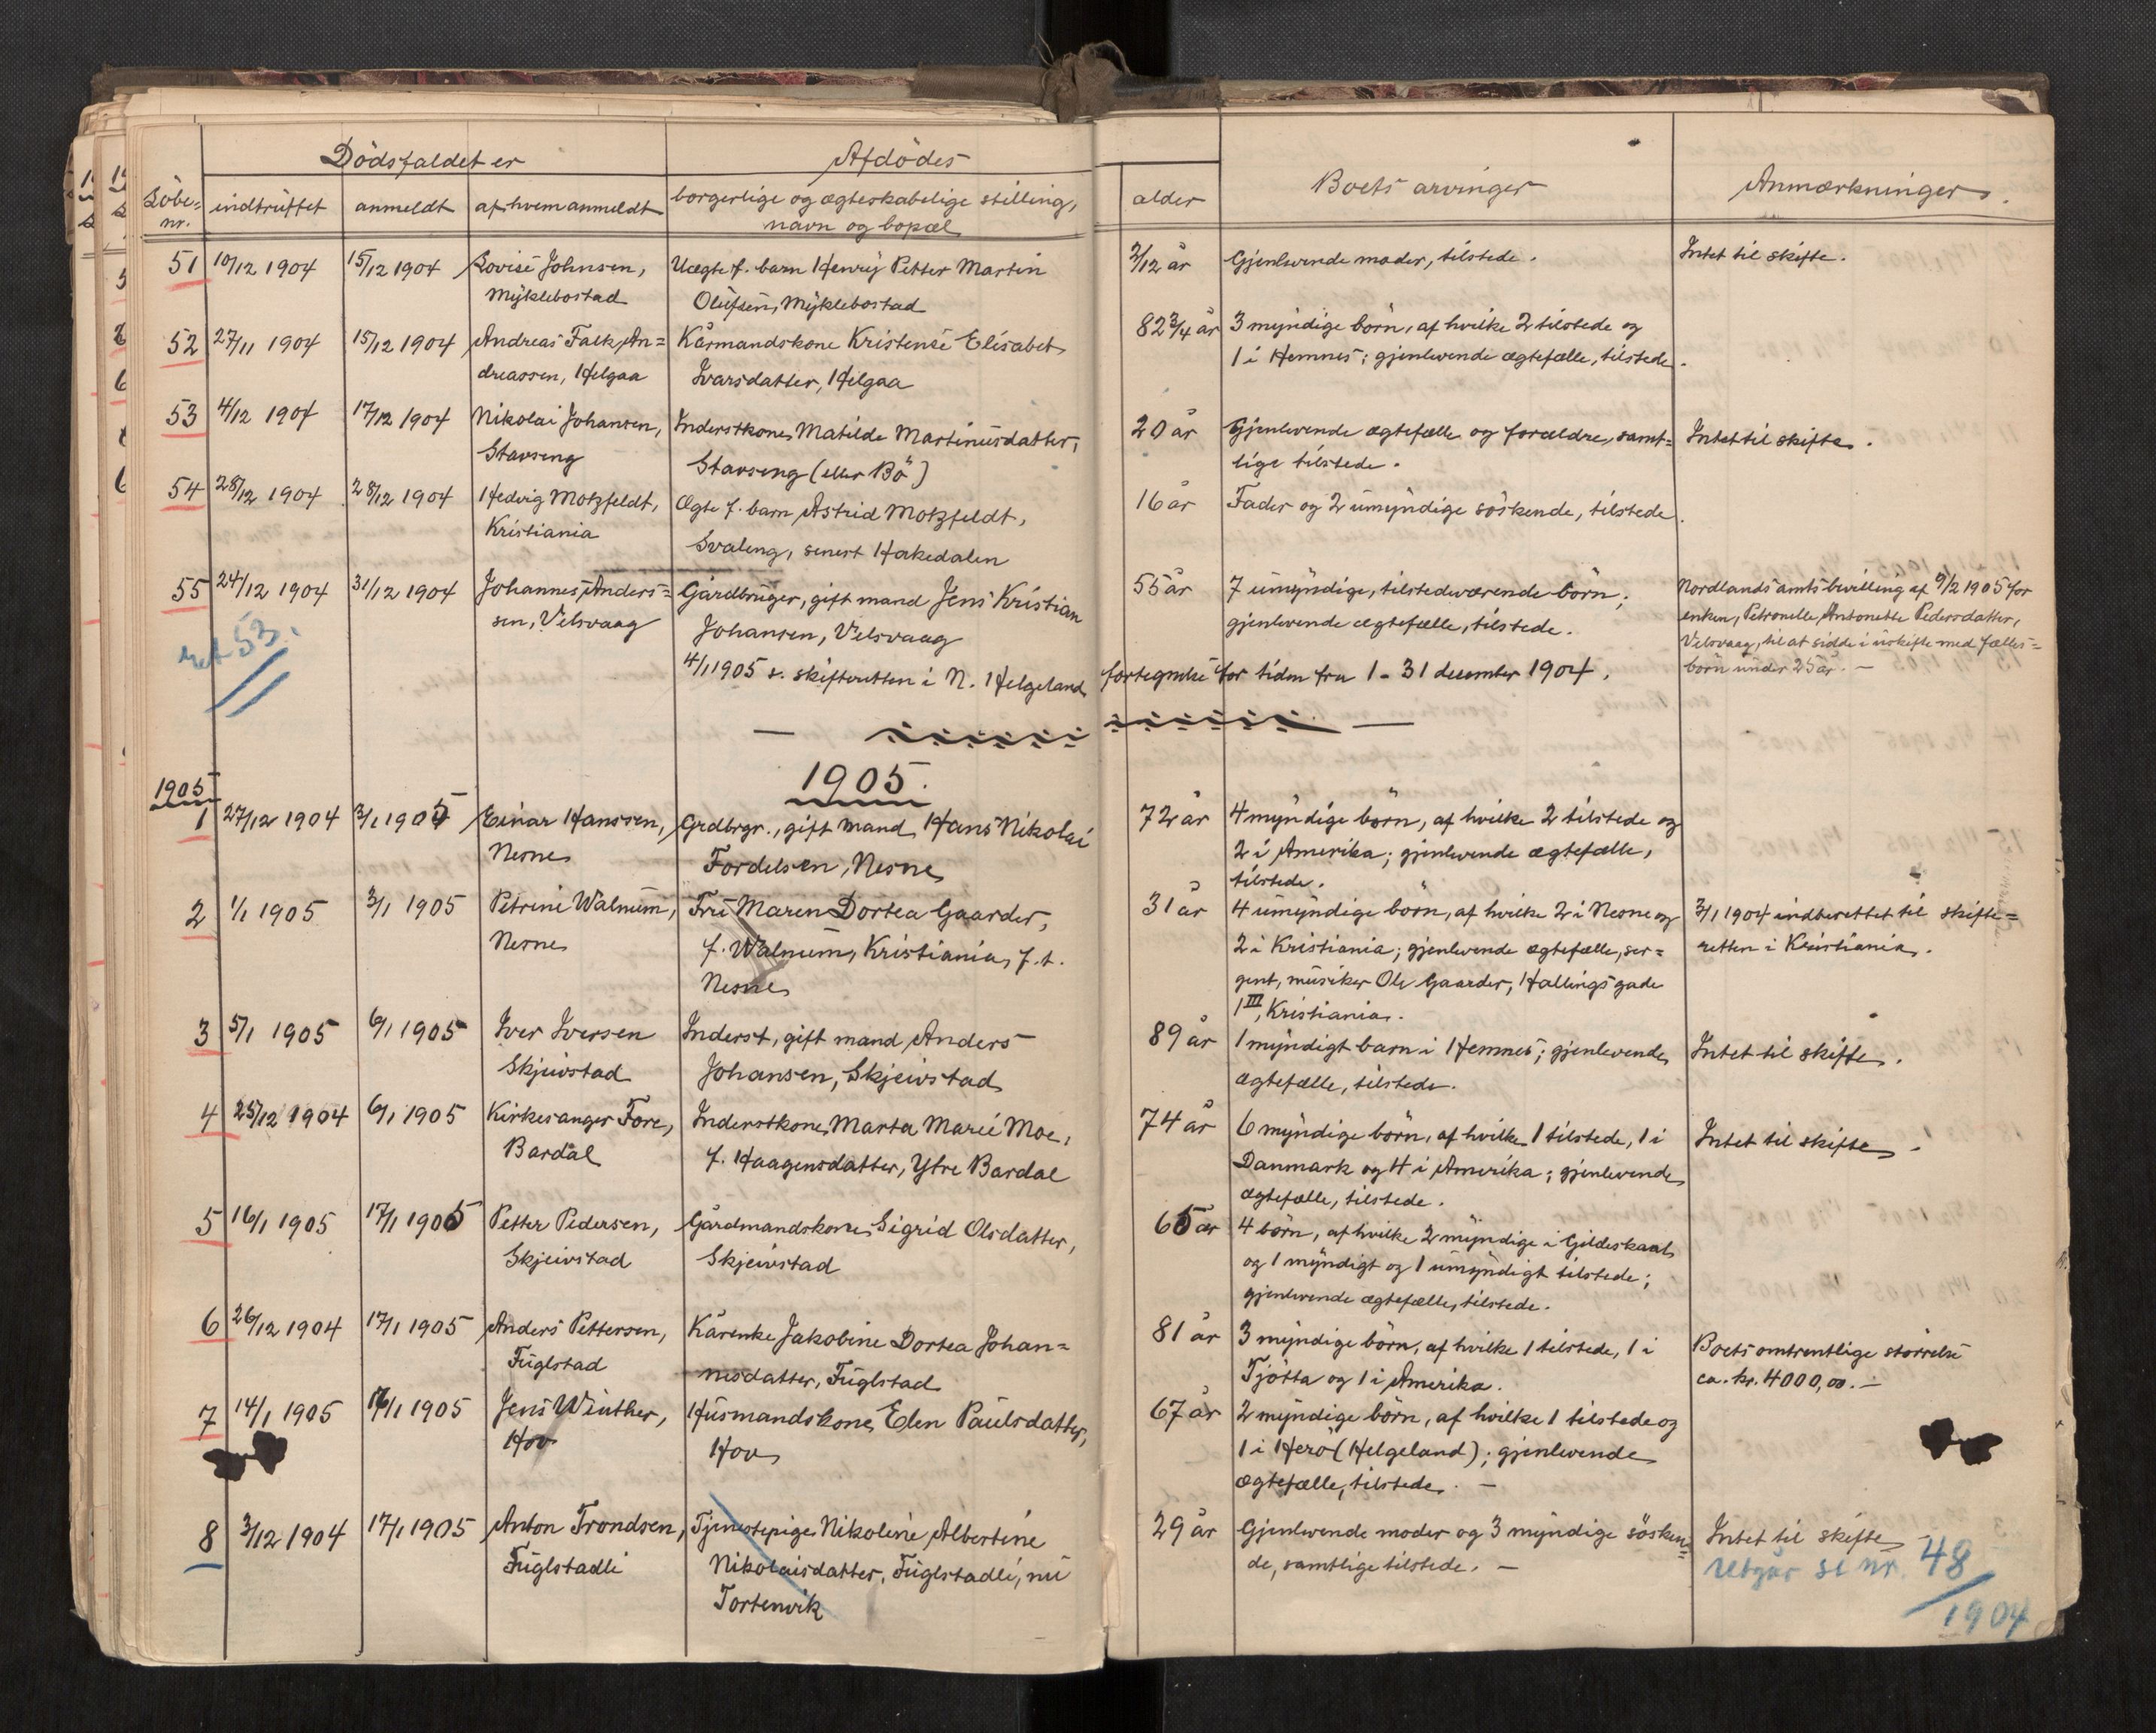 Dödsfaldet er
Afdödes
Löbe=
nr.
indtruffet
anmeldt
af hvem anmeldt
borgerlige og ægteskabelige stilling,
navn og bopæl
alder
Boets arvinger
Anmærkninger.
51 10/12 1904 15/12 1904 Lovise Johnsen, Uægte f. barn Henry Petter Martin 2/12 år Gjenlevende moder, tilstede. Intet til skifte.
Myklebostad Olufsen, Myklebostad
52 27/11 1904 15/12 1904 Andreas Falk An= Kårmandskone Kristense Elisabet 82 3/4 år 3 myndige börn, af hvilke 2 tilstede og
dreassen, Helgaa Ivarsdatter, Helgaa 1 i Hemnes; gjenlevende ægtefælle, tilstede.
53 4/12 1904 17/12 1904 Nikolai Johansen, Inderstkone Matilde Martinusdatter, 20 år Gjenlevende ægtefælle og forældre, samt= Intet til skifte.
Stavseng Stavseng (eller Bö) lige tilstede.
54 28/12 1904 28/12 1904 Hedvig Motzfeldt, Ægte f. barn Astrid Motzfeldt, 16 år Fader og 2 umyndige söskende, tilstede.
Kristiania Svaleng, senest Hakedalen
55 24/12 1904 31/12 1904 Johannes Anders= Gårdbruger, gift mand Jens Kristian 55 år 7 umyndige, tilstedeværende börn; Nordlands amts bevilling af 9/2 1905 for
sen, Velsvaag Johansen, Velsvaag gjenlevende ægtefælle, tilstede. enken, Petronelle Antonette Pedersdatter,
Velsvaag, til at sidde i uskifte med fælles=
börn under 25 år. —
53.
4/1 1905 s. skifteretten i N. Helgeland fortegnelse for tiden fra 1 - 31 december 1904.
1905.
1905
1 27/12 1904 3/1 1905 Einar Hanssen, Grdbrgr., gift mand Hans Nikolai 72 år 4 myndige börn, af hvilke 2 tilstede og
Nesne Fordelsen, Nesne 2 i Amerika; gjenlevende ægtefælle,
tilstede.
2 1/1 1905 3/1 1905 Petrine Walnum, Fru Maren Dortea Gaarder, 31 år 4 umyndige börn, af hvilke 2 i Nesne og 3/1 1904 indberettet til skifte=
Nesne f. Walnum, Kristiania, f. t. 2 i Kristiania; gjenlevende ægtefælle, ser= retten i Kristiania.
Nesne gent, musiker Ole Gaarder, Hallings gade
1 III, Kristiania.
3 5/1 1905 6/1 1905 Iver Iversen Inderst, gift mand Anders 89 år 1 myndigt barn i Hemnes; gjenlevende Intet til skifte.
Skjeivstad Johansen, Skjeivstad ægtefælle, tilstede.
4 25/12 1904 6/1 1905 Kirkesanger Fore, Inderstkone Marta Marie Moe, 74 år 6 myndige börn, af hvilke 1 tilstede, 1 i Intet til skifte.
Bardal f. Haagensdatter, Ytre Bardal Danmark og 4 i Amerika; gjenlevende
ægtefælle, tilstede.
5 16/1 1905 17/1 1905 Petter Pedersen, Gårdmandskone Sigrid Olsdatter, 65 år 4 börn, af hvilke 2 myndige i Gildeskaal
Skjeivstad Skjeivstad og 1 myndigt og 1 umyndigt tilstede;
gjenlevende ægtefælle, tilstede.
6 26/12 1904 17/1 1905 Anders Pettersen, Kårenke Jakobine Dortea Johan= 81 år 3 myndige börn, af hvilke 1 tilstede, 1 i Boets omtrentlige störrelse
Fuglstad nesdatter, Fuglstad Tjötta og 1 i Amerika. ca. kr. 4000,00. —
7 14/1 1905 17/1 1905 Jens Winther, Husmandskone Elen Paulsdatter, 67 år 2 myndige börn, af hvilke 1 tilstede og
Hov Hov 1 i Herö (Helgeland); gjenlevende
ægtefælle, tilstede. —
8 3/12 1904 17/1 1905 Anton Trondsen, Tjenestepige Nikoline Albertine 29 år Gjenlevende moder og 3 myndige sösken= Intet til skifte
Fuglstadli Nikolaisdatter, Fuglstadli, nu de, samtlige tilstede. — Utgår se nr. 48
Tortenvik 1904